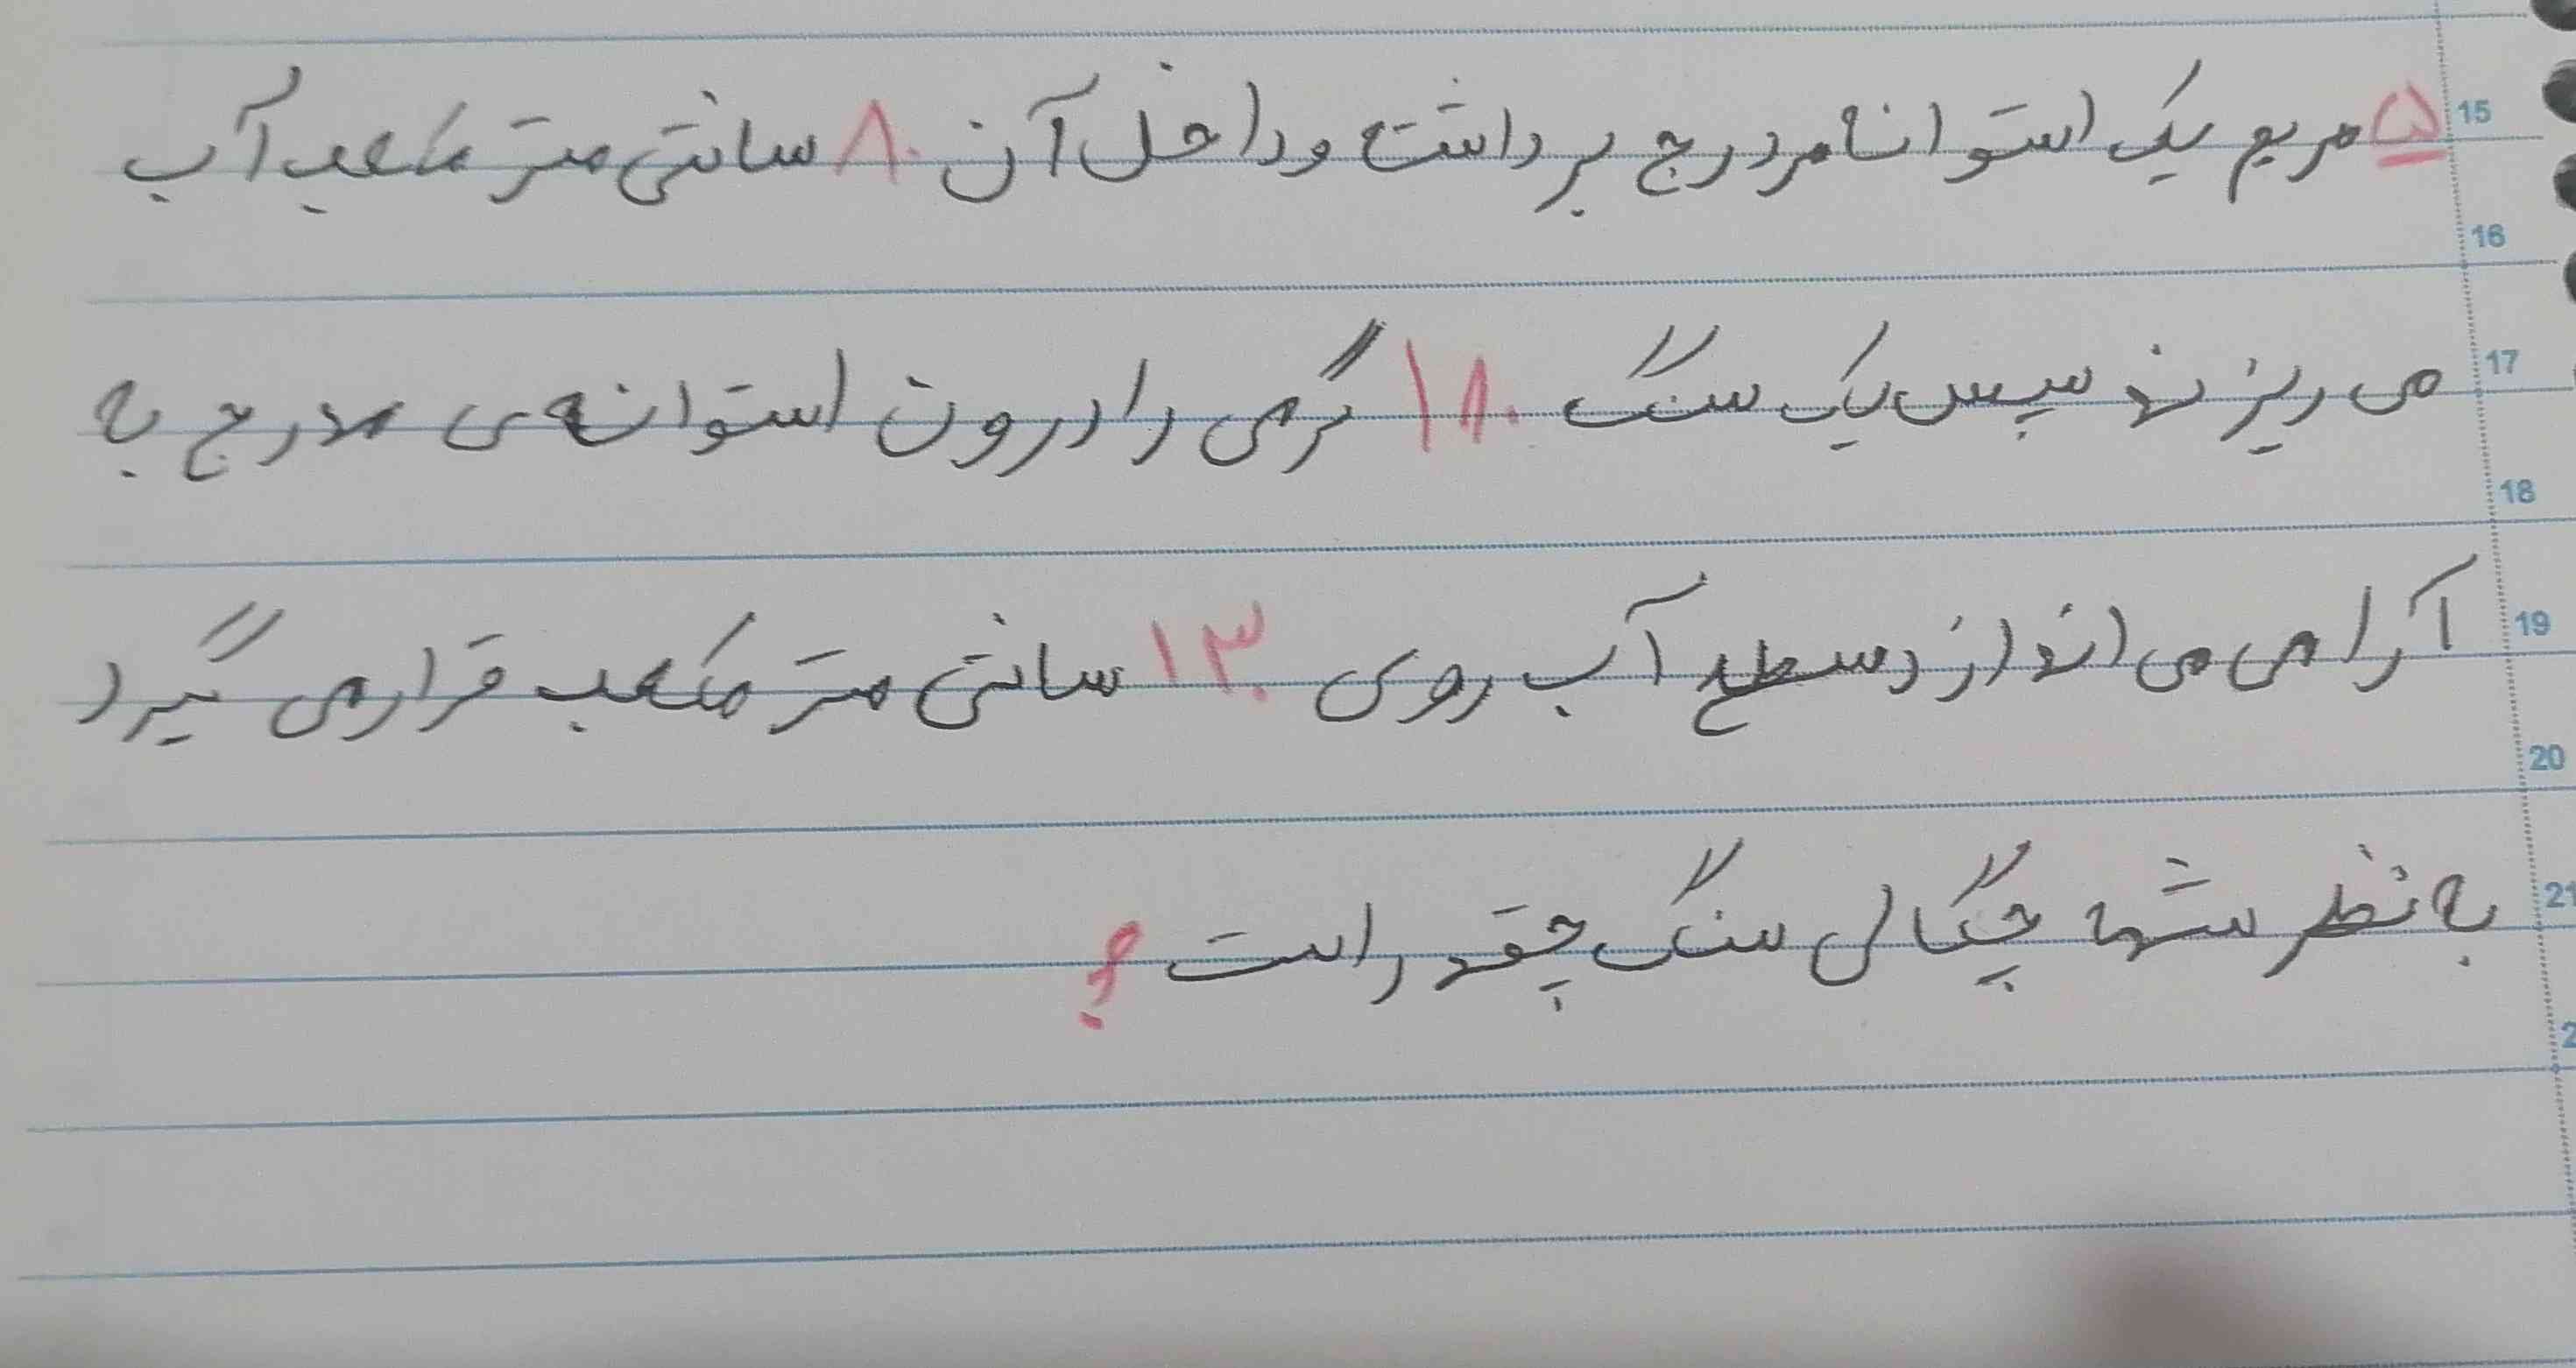 ۵ مریم یک استوانه مدرج برداشت و داخل آن ۸۰ سانتی متر مکعب آب 15
16
می ریزند سپس یک سنگ ۱۸۰ گرمی را درون استوانه ی مدرج به 17
18
آرامی می اندازد سطح آب روی ۱۳۰ سانتی متر مکعب قرار می گیرد 19
20
به نظر شما چگالی سنگ چقدر است ؟ 21
2